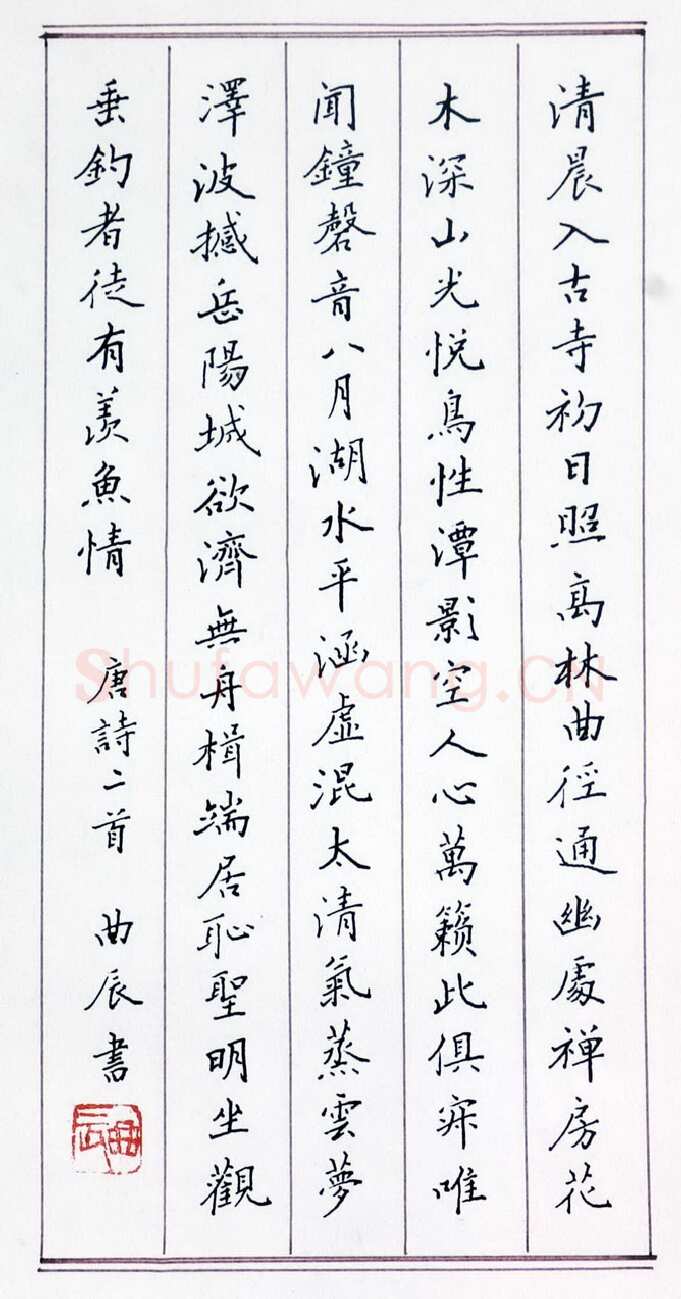 清晨入古寺初日照高林曲徑通幽處禅房花
木深山光悦鳥性潭影空人心萬籟此俱寂唯
闻鐘磬音八月湖水平涵虚混太清氣蒸雲夢
澤波撼岳陽城欲濟無舟楫端居恥聖明坐觀
垂釣者徒有羨魚情 唐詩二首 曲辰書
Shufawang.CN